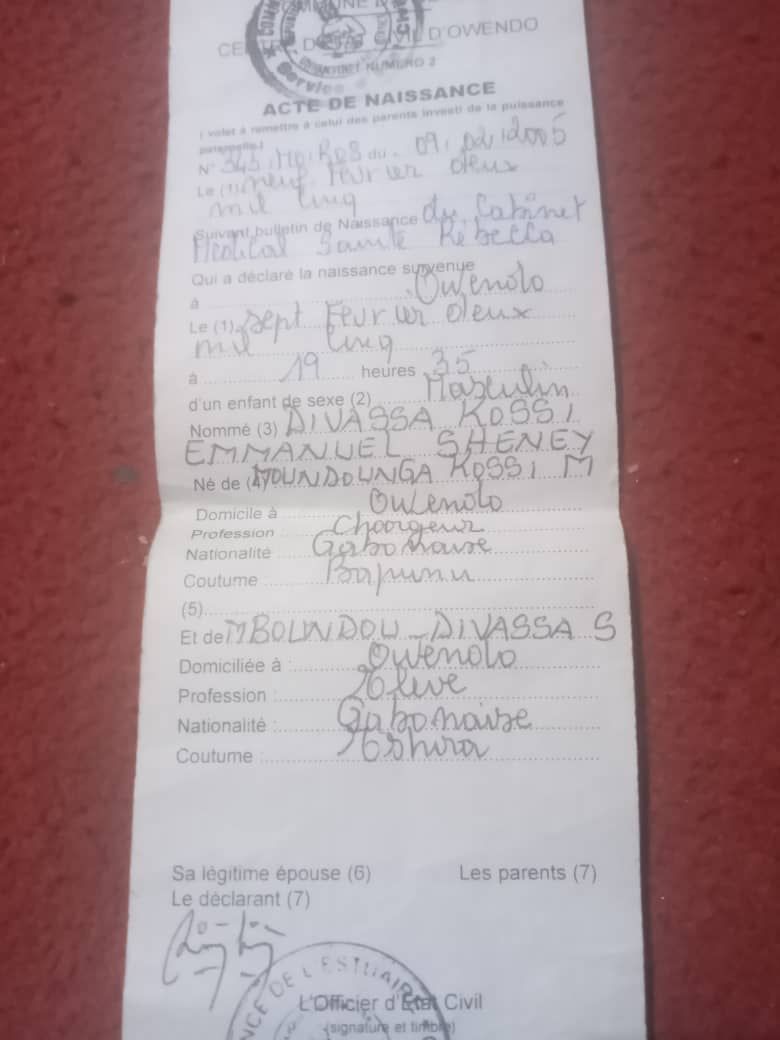 COMMUNE
CENTRE D'ETAT CIVIL D'OWENDO
NUMERO 2
Service
ACTE DE NAISSANCE
( volet à remettre à celui des parents investi de la puissance
paternelle )
N° 345 du 09/02/2005
Le (1) neuf février deux
mil cinq
Suivant bulletin de Naissance du Cabinet
Médical Santé Rebecca
Qui a déclaré la naissance survenue
à Owendo
Le (1) sept Février deux
mil cinq
à 19 heures 35
d'un enfant de sexe (2) Masculin
Nommé (3) DIVASSA KOSSI
EMMANUEL SHENEY
Né de (4) MOUNDOUNGA KOSSI M
Domicile à Owendo
Profession Chargeur
Nationalité Gabonaise
Coutume : Bapunu
(5)
Et de MBOUNDOU - DIVASSA S
Domiciliée à : Owendo
Profession : Elève
Nationalité : Gabonaise
Coutume : Eshira
Sa légitime épouse (6) Les parents (7)
Le déclarant (7)
DE L'ESTUAIRE
L'Officier d'Etat Civil
(signature et timbre)